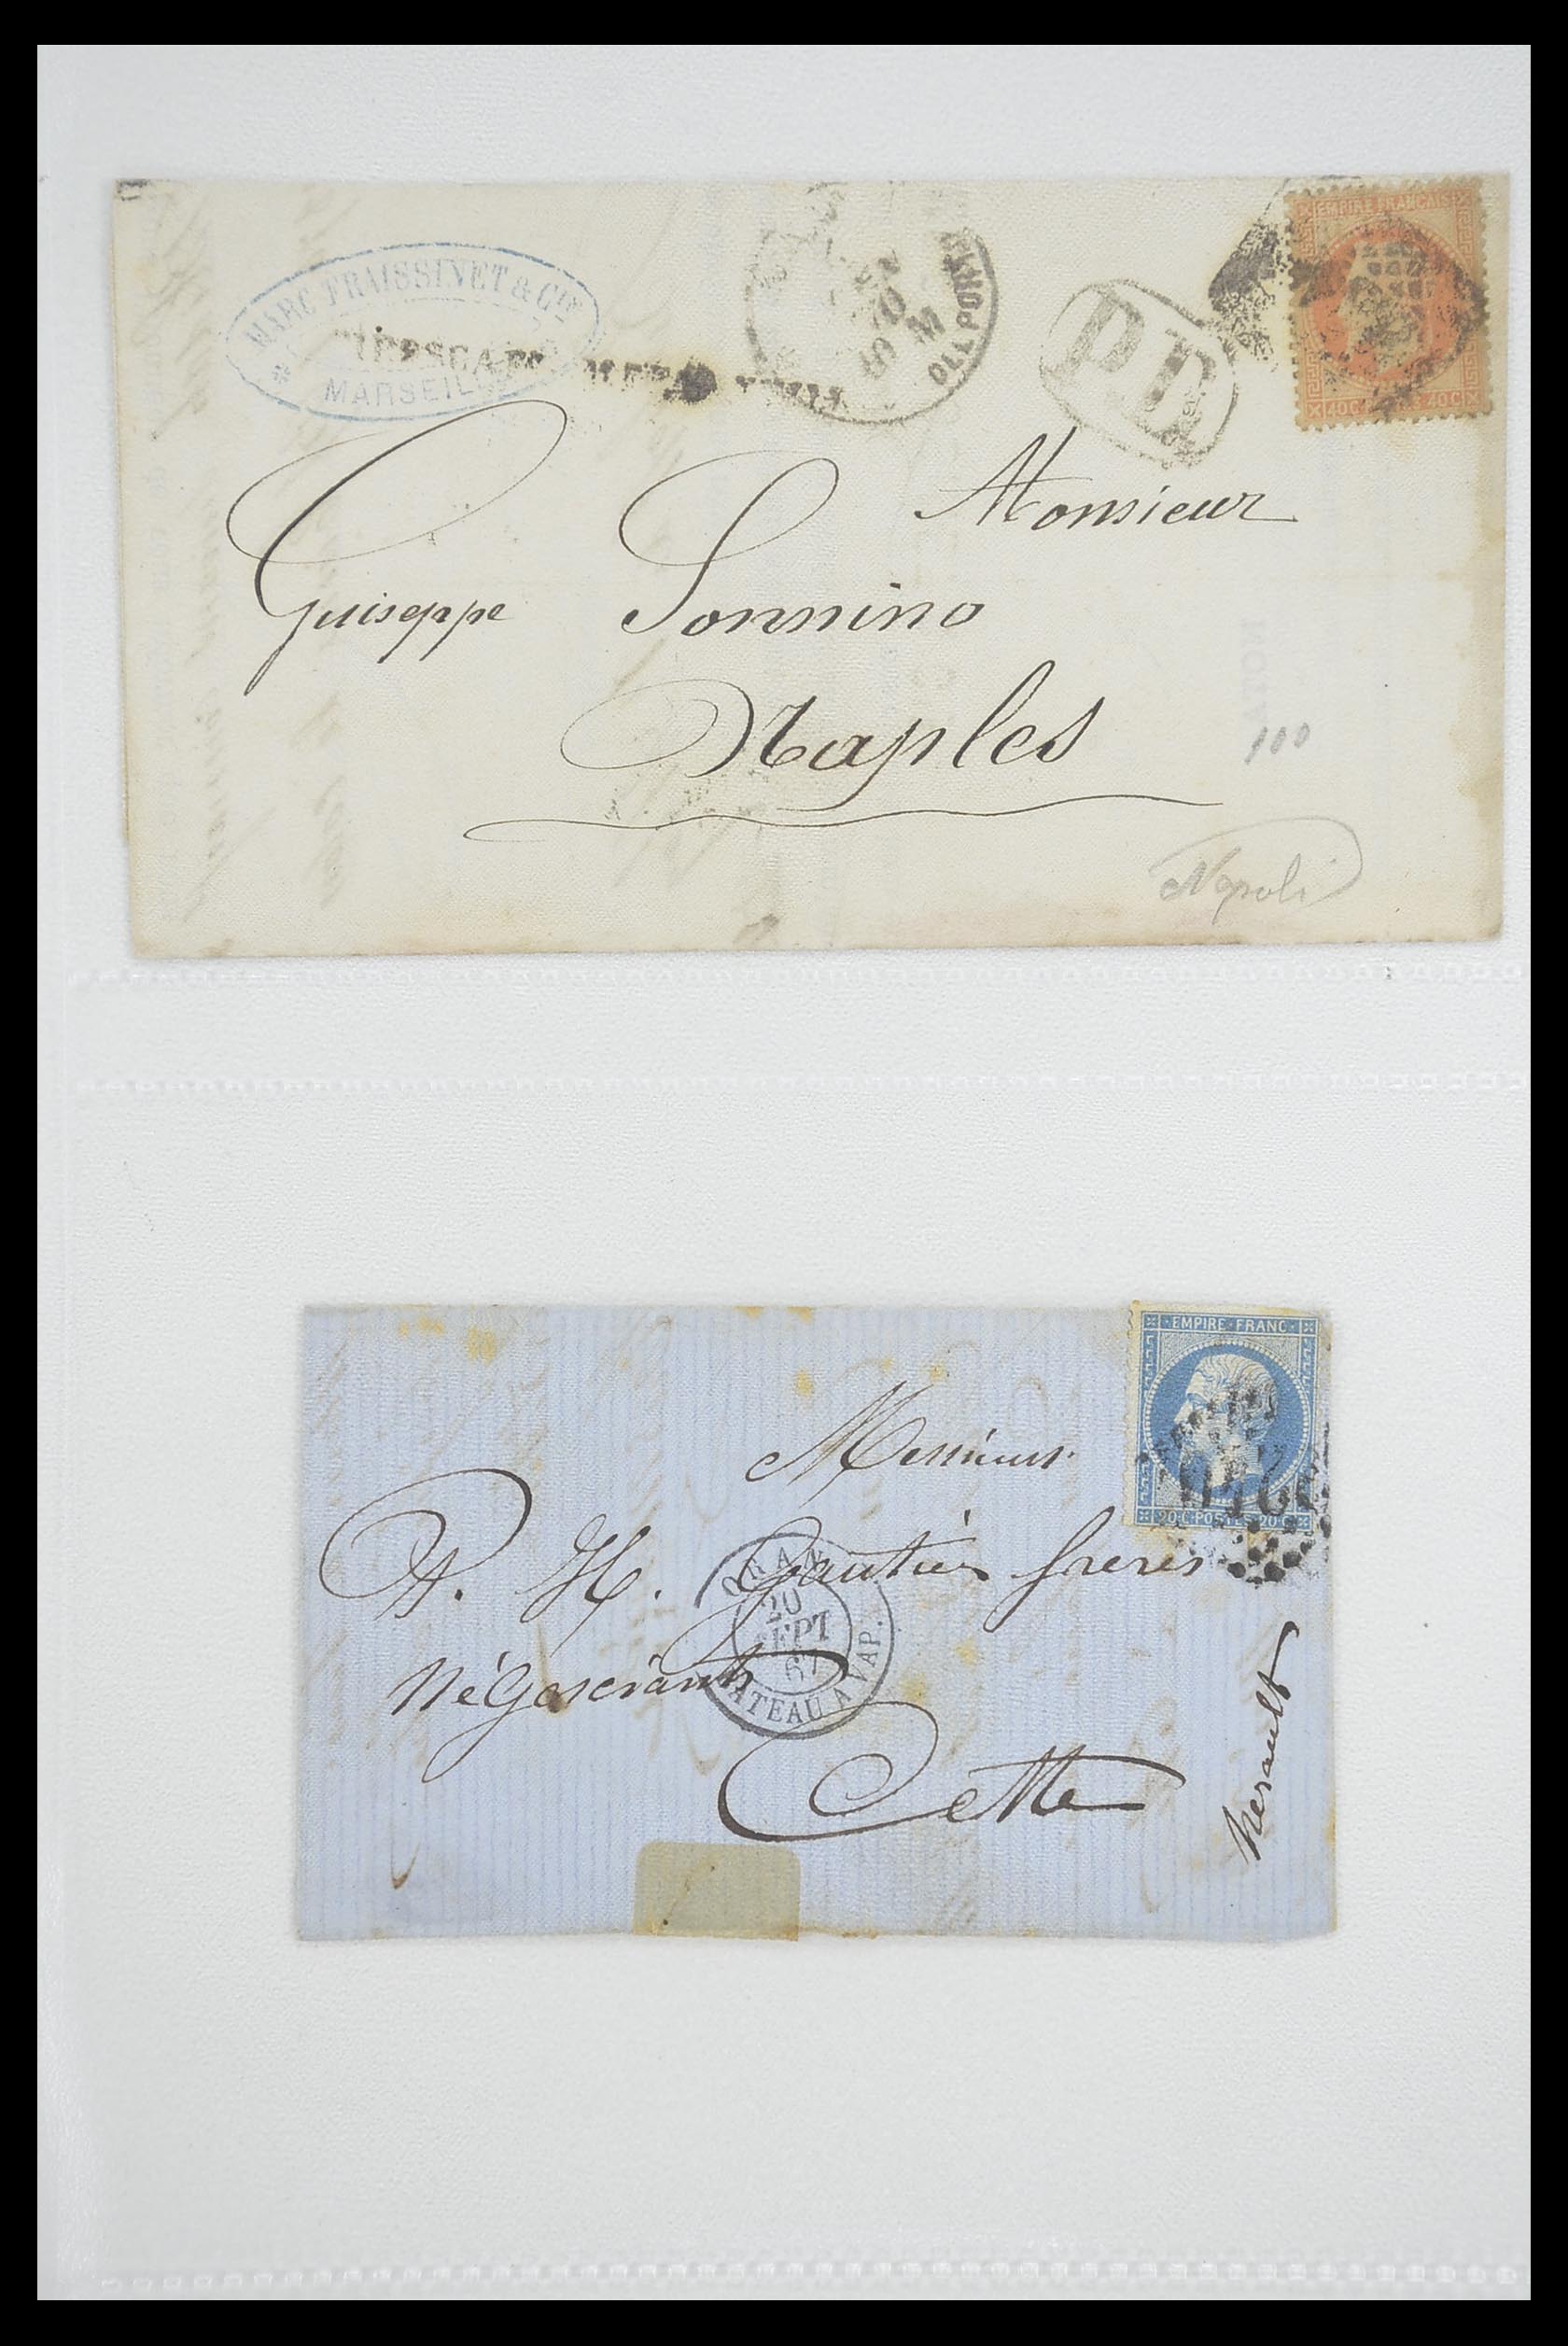 MARC FRAISSINET & CIE
MARSEILLE
COLL PORTES
PD
EMPIRE FRANÇAIS
40 C POSTES 40 C
Monsieur
Guiseppe Sonnino
Naples
100
Napoli
EMPIRE FRANC
20 C POSTES 20 C
Messieurs
A. H. Gautier freres
Négociants
ORAN
20
SEPT
67
BATEAU A VAP.
Cette
Herault